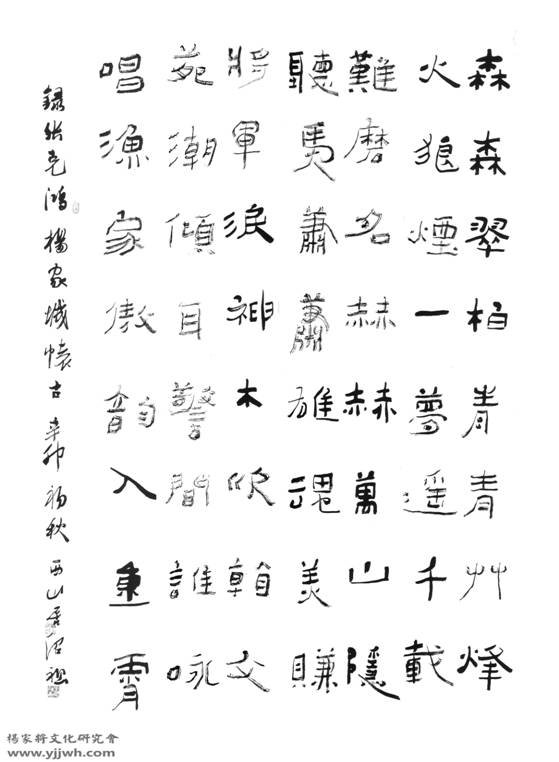 森森翠柏青青艸烽
火狼煙一夢遥千載
難磨名赫赫萬山隱
聽馬蕭蕭雄魂美賺
將軍淚神木吹翰文
苑潮傾耳警間誰咏
唱漁家傲韵入重霄
録張克鴻楊家城懷古辛卯初秋西山
楊家將文化研究會
www.yjjwh.com